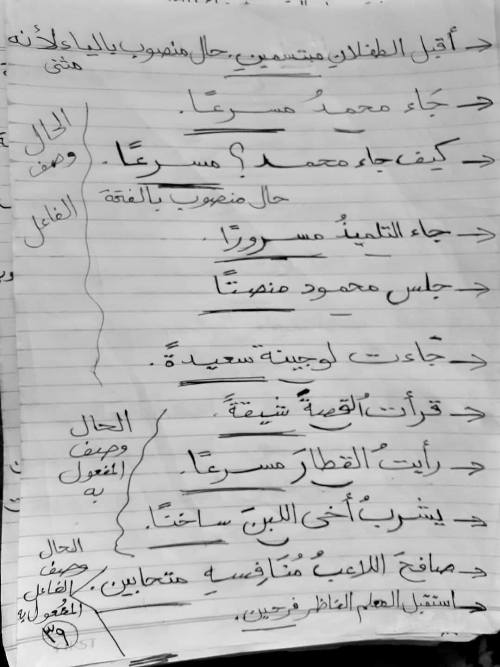 ← أقبل الطفلانِ مبتسمينِ. حال منصوب بالياء لأنه
مثنى
← جَاء محمدُ مسرعًا.
← كيف جاء محمد؟ مسرعًا.
حال منصوب بالفتحة
← جاء التلميذُ مسرورًا.
← جلس محمود منصتًا
← جَاءت لوجينة سعيدةً.
الحال
وصف
الفاعل
← قرأت القصةَ شيقةً.
← رأيتُ القطارَ مسرعًا.
← يشربُ أخى اللبنَ ساخنًا.
الحال
وصف
المفعول
به
← صافحَ اللاعبُ مُنَافسهِ متحابين.
← استقبل المعلم الناظر فرحين.
الحال
وصف
الفاعل
المفعول به
٣٩